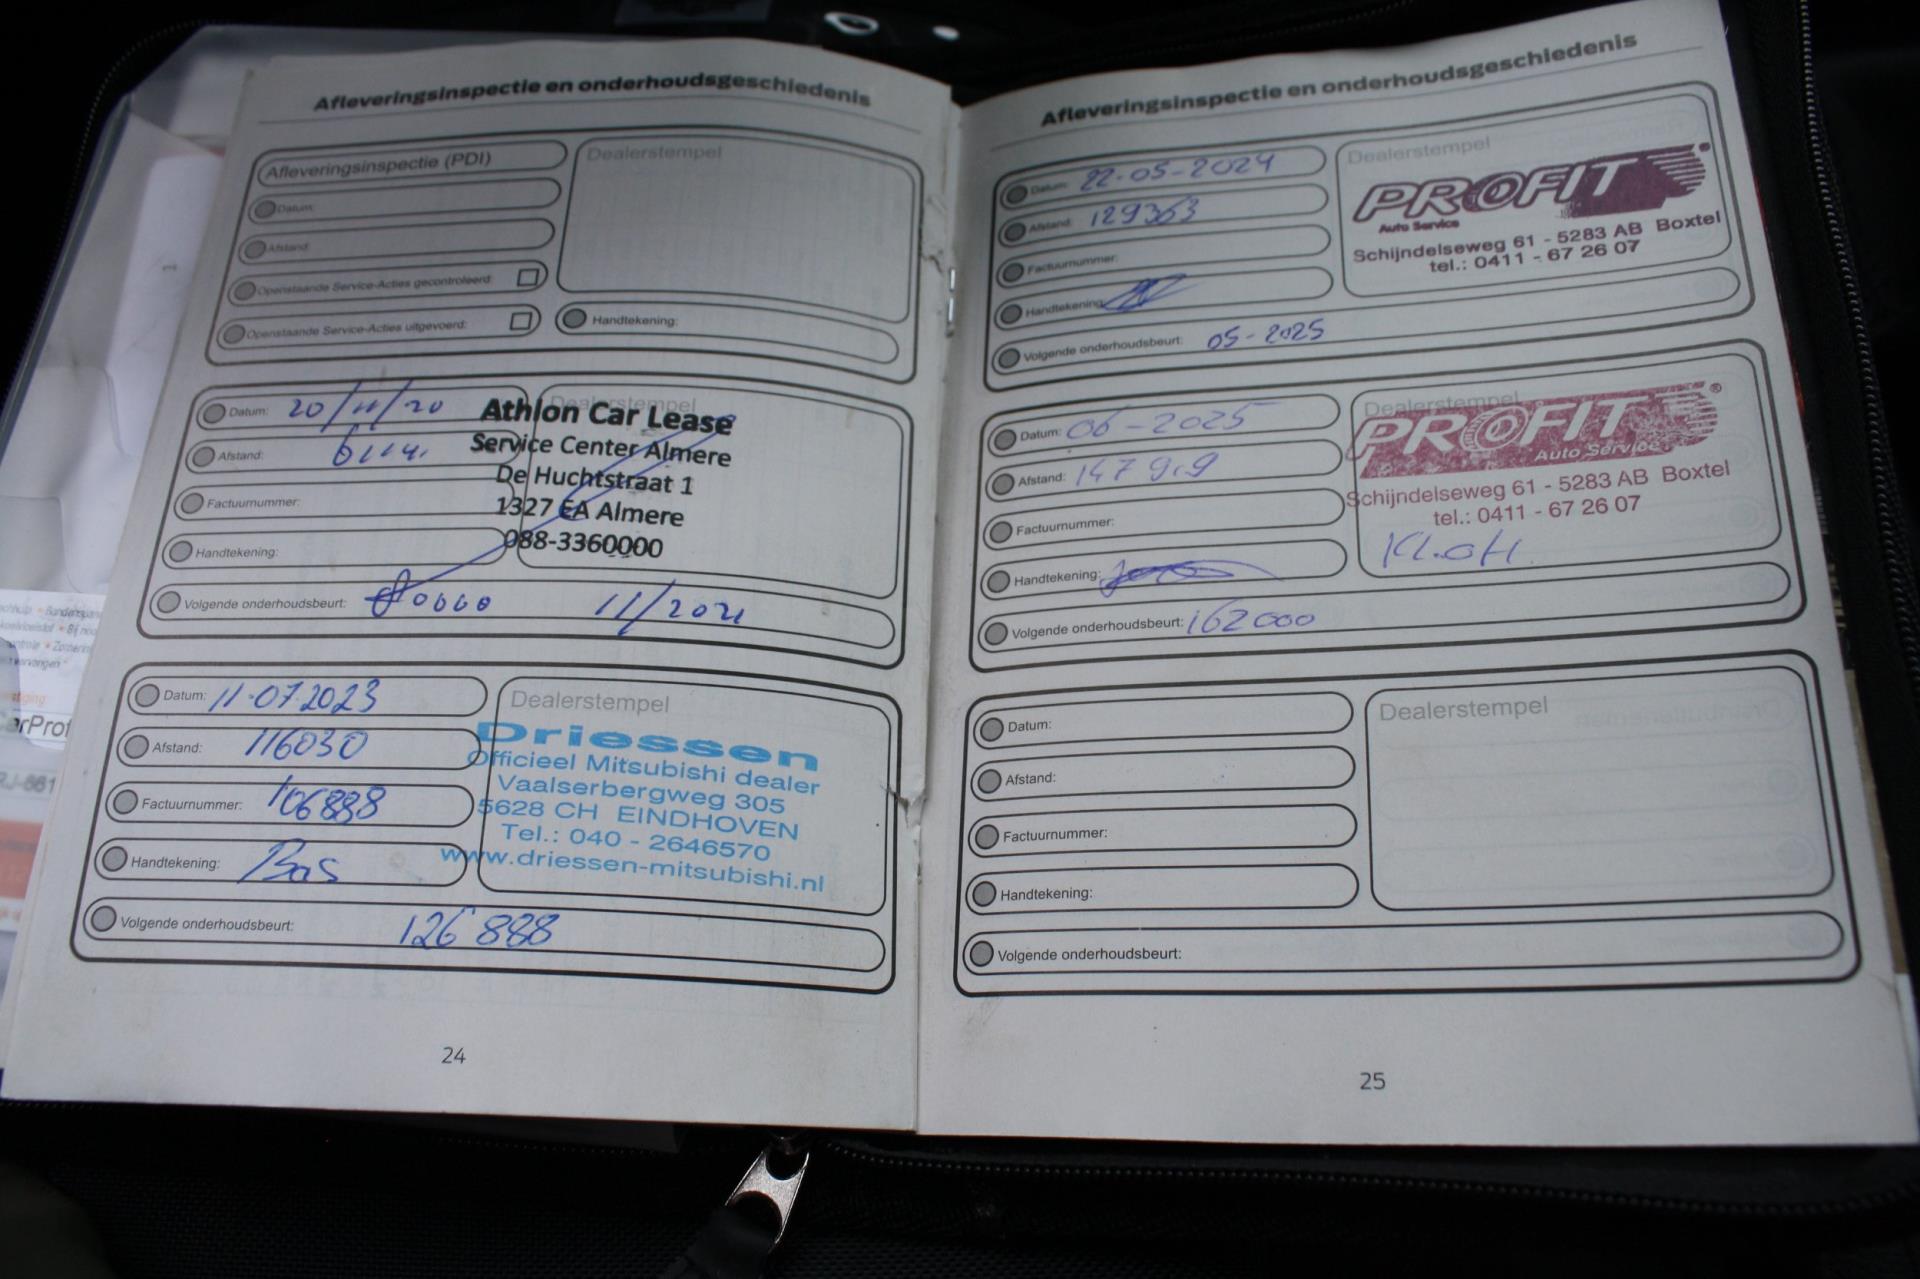 Afleveringsinspectie en onderhoudsgeschiedenis
Afleveringsinspectie (PDI)
Dealerstempel
Datum:
Afstand:
Openstaande Service-Acties gecontroleerd:
Openstaande Service-Acties uitgevoerd:
Handtekening:
Datum: 20/11/20
Dealerstempel
Athlon Car Lease
Service Center Almere
De Huchtstraat 1
1327 EA Almere
088-3360000
Afstand:
Factuurnummer:
Handtekening:
Volgende onderhoudsbeurt: 11/2021
Datum: 11-07-2023
Afstand: 116030
Factuurnummer: 106888
Handtekening: Bas
Dealerstempel
Driessen
Officieel Mitsubishi dealer
Vaalserbergweg 305
5628 CH EINDHOVEN
Tel.: 040 - 2646570
www.driessen-mitsubishi.nl
Volgende onderhoudsbeurt: 126 888
24
Afleveringsinspectie en onderhoudsgeschiedenis
Datum: 22-05-2024
Afstand: 129363
Factuurnummer:
Handtekening:
Dealerstempel
PROFIT®
Auto Service
Schijndelseweg 61 - 5283 AB Boxtel
tel.: 0411 - 67 26 07
Volgende onderhoudsbeurt: 05-2025
Datum: 06-2025
Afstand: 147 919
Factuurnummer:
Handtekening:
Dealerstempel
PROFIT®
Auto Service
Schijndelseweg 61 - 5283 AB Boxtel
tel.: 0411 - 67 26 07
Volgende onderhoudsbeurt: 162000
Datum:
Afstand:
Factuurnummer:
Handtekening:
Dealerstempel
Volgende onderhoudsbeurt:
25